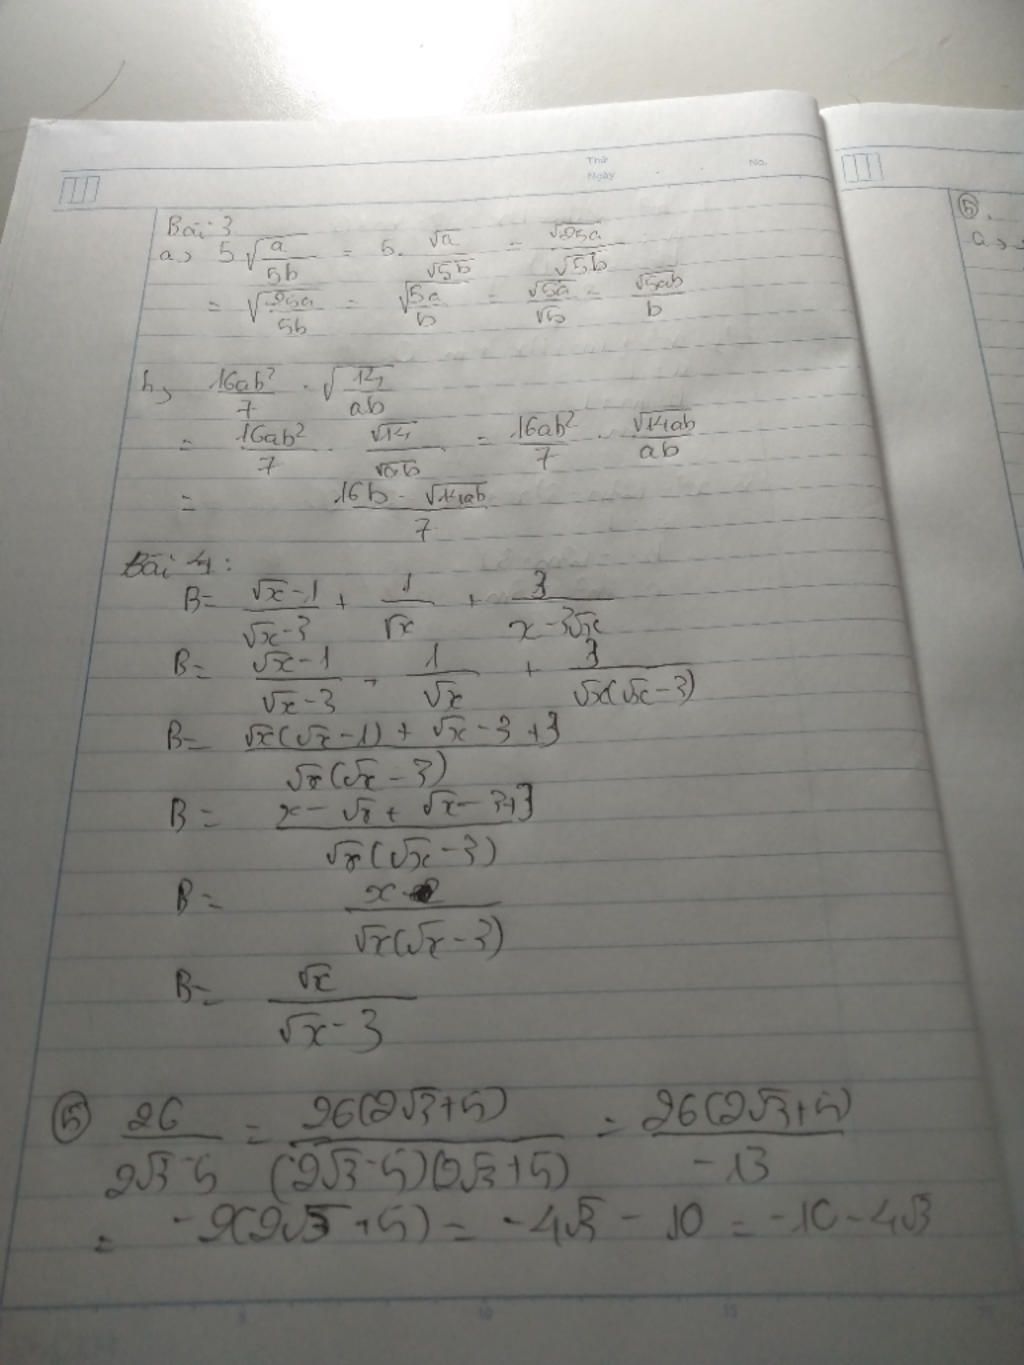 Thứ
Ngày
No.
Bài 3
a, 5√(a/5b) = 5. √a/√5b = √25a/√5b
= √(25a/5b) = √(5a/b) = √5a/√b = √5ab/b
b, 16ab²/7 . √(14/ab)
= 16ab²/7 . √14/√ab = 16ab²/7 . √14ab/ab
= 16b . √14ab/7
Bài 4:
B= (√x-1)/(√x-3) + 1/√x + 3/(x-3√x)
B= (√x-1)/(√x-3) + 1/√x + 3/(√x(√x-3))
B= (√x(√x-1) + √x-3+3)/(√x(√x-3))
B= (x-√x+√x-3+3)/(√x(√x-3))
B= x/(√x(√x-3))
B= √x/(√x-3)
⑤ 26/(2√3-5) = 26(2√3+5)/((2√3-5)(2√3+5)) = 26(2√3+5)/-13
= -2(2√3+5) = -4√3-10 = -10-4√3
⑤.
a,
5
10
15